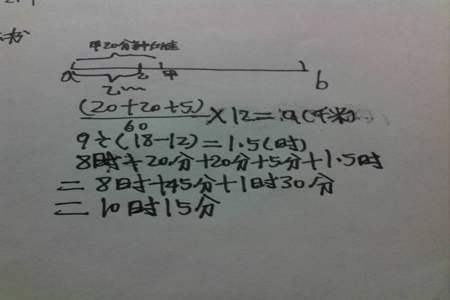 甲20分钟的路程
a
乙
甲
b
(20+20+5)/60×12=9(千米)
9÷(18-12)=1.5(时)
8时+20分+20分+5分+1.5时
=8时+45分+1时30分
=10时15分